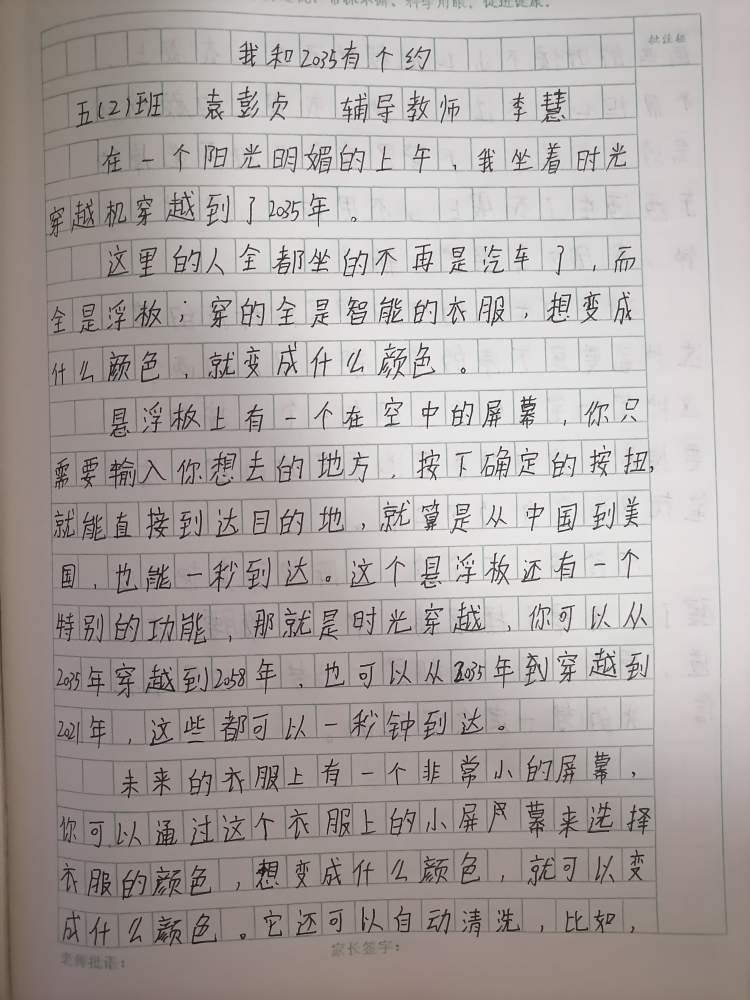 我和2035有个约
五(2)班 袁彭贞 辅导教师 李慧
在一个阳光明媚的上午，我坐着时光
穿越机穿越到了2035年。
这里的人全都坐的不再是汽车了，而
全是浮板；穿的全是智能的衣服，想变成
什么颜色，就变成什么颜色。
悬浮板上有一个在空中的屏幕，你只
需要输入你想去的地方，按下确定的按扭，
就能直接到达目的地，就算是从中国到美
国，也能一秒到达。这个悬浮板还有一个
特别的功能，那就是时光穿越，你可以从
2035年穿越到2058年，也可以从2035年到穿越到
2021年，这些都可以一秒钟到达。
未来的衣服上有一个非常小的屏幕，
你可以通过这个衣服上的小屏幕来选择
衣服的颜色，想变成什么颜色，就可以变
成什么颜色。它还可以自动清洗，比如，
老师批语： 家长签字：